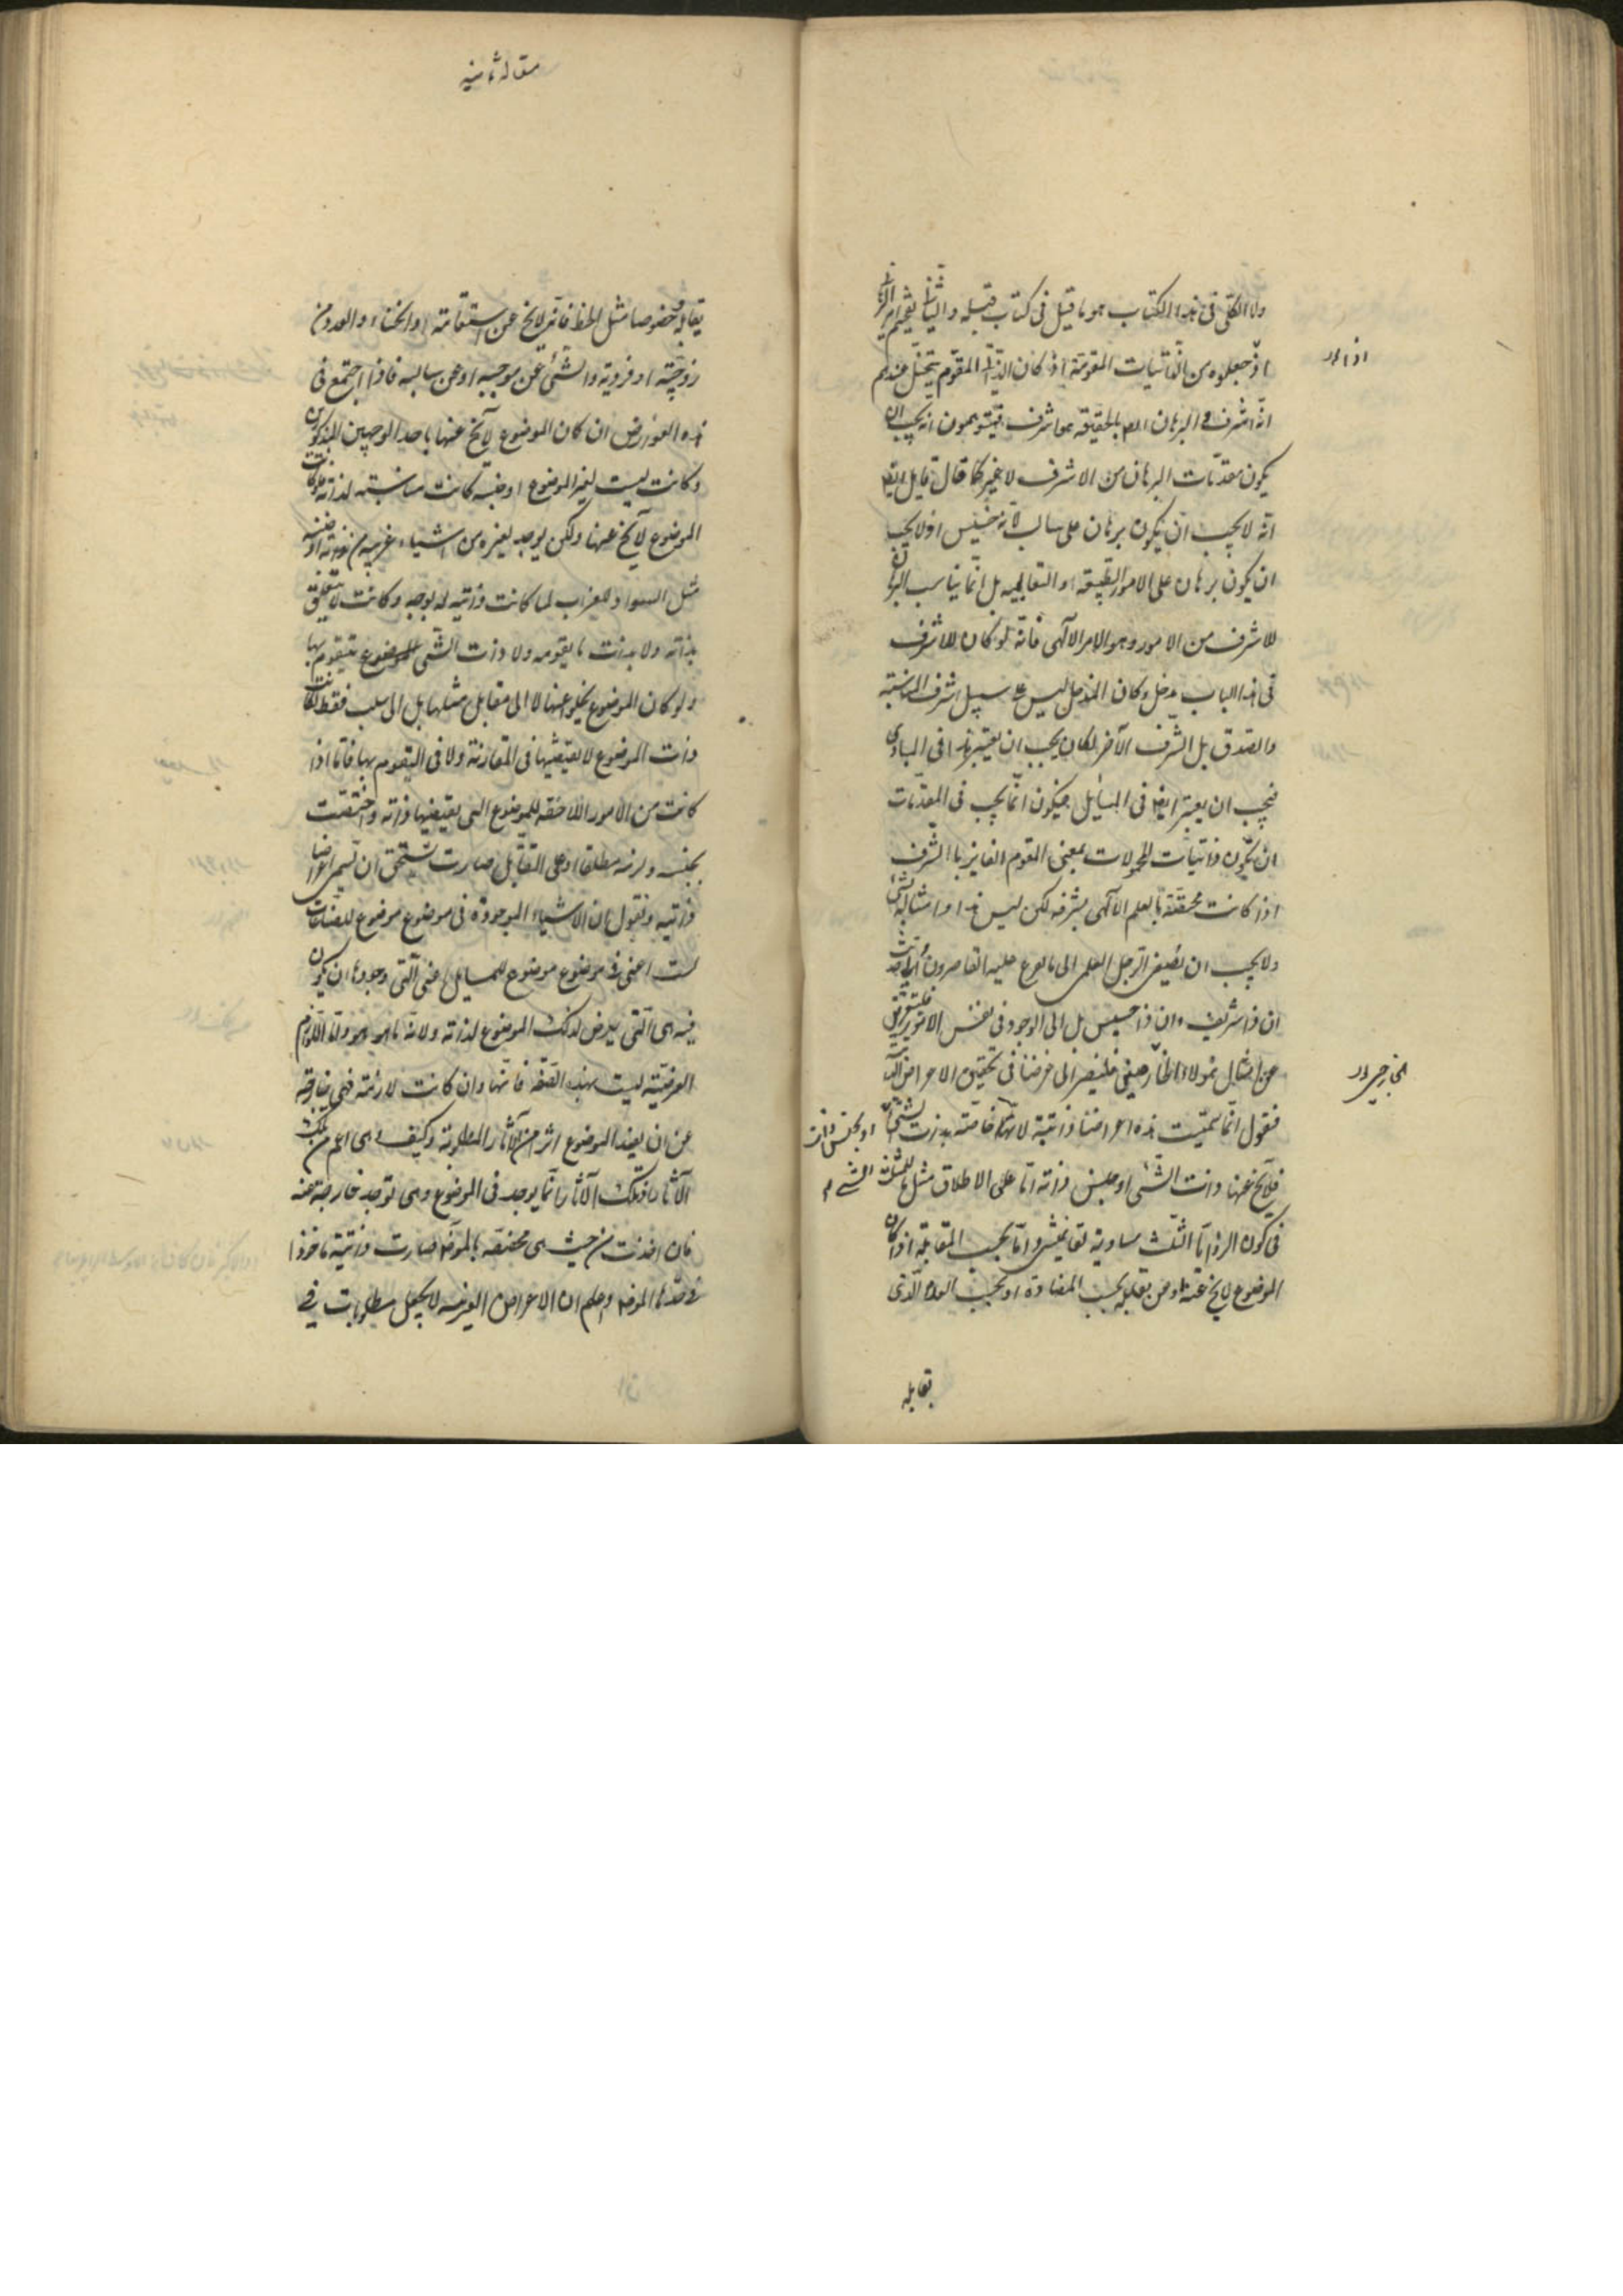 ولا الكلى فى هذا الكتاب هو ما قيل فى كتاب قبله والثانى
اذ جعلوه من الذاتيات المقومة اذ كان الذاتى المقوم يتخيل عندهم
اذا
انه اشرف والبرهان بالحقيقة هو اشرف فيتوهمون انه يجب ان
يكون مقدمات البرهان من الاشرف لا غير كما قال قايل ايضا
انه لا يجب ان يكون برهان على سالب لانه خسيس اولا يجب
ان يكون برهان على الامور الطبيعية او التعاليمية بل انما يناسب البرهان
للاشرف من الامور وهو الامر الالهى فانه لو كان للاشرف
فى هذا الباب مدخل وكان المدخل ليس على سبيل شرف المناسبة
والصدق بل الشرف الآخر لكان يجب ان يعتبر هذا فى المبادى
فيجب ان يعتبر ايضا فى المسايل فيكون انما يجب فى المقدمات
ان يكون ذاتيات المحمولات بمعنى المقوم الفايز بالشرف
اذا كانت محققة بالعلم الالهى بشرفه لكن ليس هذا وامثاله بشئ
ولا يجب ان يصيغ الرجل العلمى الى ما يعرج عليه القاصرون
ان ذا شريف وان ذا خسيس بل الى الوجود فى نفس الامور
عن امثال هؤلاء فلنصر الى غرضنا فى تحقيق الاعراض الذاتية
الخارجين
فنقول انما سميت هذه اعراضا ذاتية لانها خاصة بذات الشئ
او بجنس ذات الشئ
فلا يخ عنها ذات الشئ او جنس ذاته اما على الاطلاق مثل ما للمثلث
فى كون الزوايا الثلث مساوية لقائمتين واما بحسب المقابلة اذا كان
الموضوع لا يخ عنه او عن مقابله بحسب المضادة او بحسب العدم الذى
يقابله
مقاله ثانيه
يقابله خصوصا مثل الخط فانه لا يخ عن استقامة او انحناء والعدد من
زوجية او فردية والشئ عن موجبه او عن سالبه فاذا اجتمع فى
هذه العوارض ان كان الموضوع لا يخ عنها باحد الوجهين المذكورين
وكانت ليست لغير الموضوع او جنسه كانت مناسبة لذاته
الموضوع لا يخ عنها ولكن يوجد لغيره من اشياء غريبة من ذاته او جنسه
مثل السواد للغراب لما كانت ذاتية له بوجه وكانت لا تتعلق
بذاته ولا بذات ما يقومه ولا ذات الشئ الموضوع يتقوم بها
ولو كان الموضوع يخلو عنها لا الى مقابل مثلها بل الى سلب فقط لكانت
ذات الموضوع لا يقتضيها فى المقارنة ولا فى التقوم بها فاما اذا
كانت من الامور اللاحقة للموضوع التى يقتضيها ذاته واختصت
بجنسه ولزمه مطلقا او على التقابل صارت تستحق ان تسمى اعراضا
ذاتية ونقول بان الاشياء الموجودة فى موضوع موضوع للصناعات
لست اعنى فى موضوع موضوع للمسايل اعنى التى وجودها ان يكون
فيه هى التى يعرض لذلك الموضوع لذاته ولانه ما هو هو واما اللوازم
العرضية ليست بهذه الصفة فانها وان كانت لازمة فهى خارجة
عن ان يفيد الموضوع اثر من الآثار المطلوبة وكيف وهى اعم من تلك
الآثار وتلك الآثار انما يوجد فى الموضوع وهى توجد خارجة عنه
فان اخذت من حيث هى مخصصة بالموضوع صارت ذاتية ماخوذا
فى حدها الموضوع واعلم ان الاعراض الغريبة لا يجعل مطلوبات فى